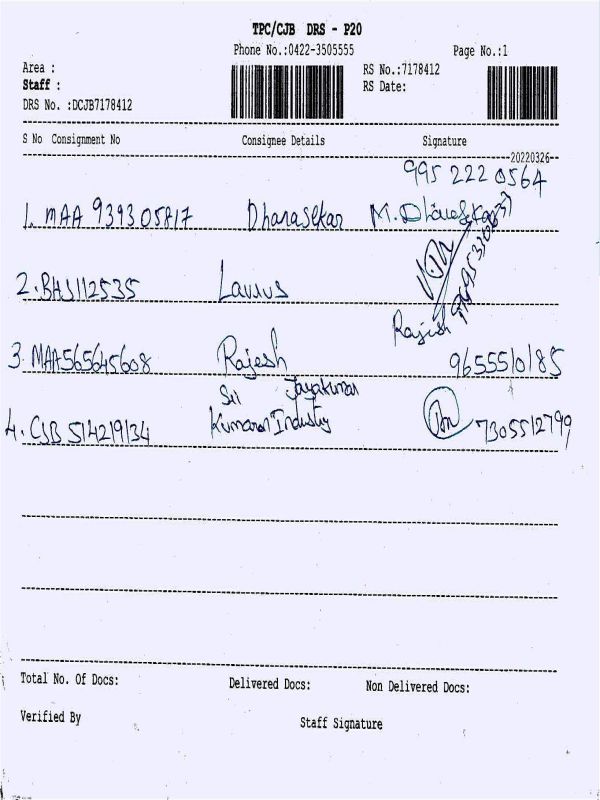 TPC/CJB DRS - P20
Phone No.:0422-3505555 Page No.:1
Area : RS No.:7178412
Staff : RS Date:
DRS No. :DCJB7178412
S No Consignment No Consignee Details Signature
20220326
995 222 0564
1. MAA 939305817 Dhanasekar M. Dhanasekar
2. BHS112535
Rajesh
3. MAA565645608 Rajesh 9655510185
Sri Jayakumar
4. CJB 514219134 Kumaran Industry 7305512799
Total No. Of Docs: Delivered Docs: Non Delivered Docs:
Verified By Staff Signature